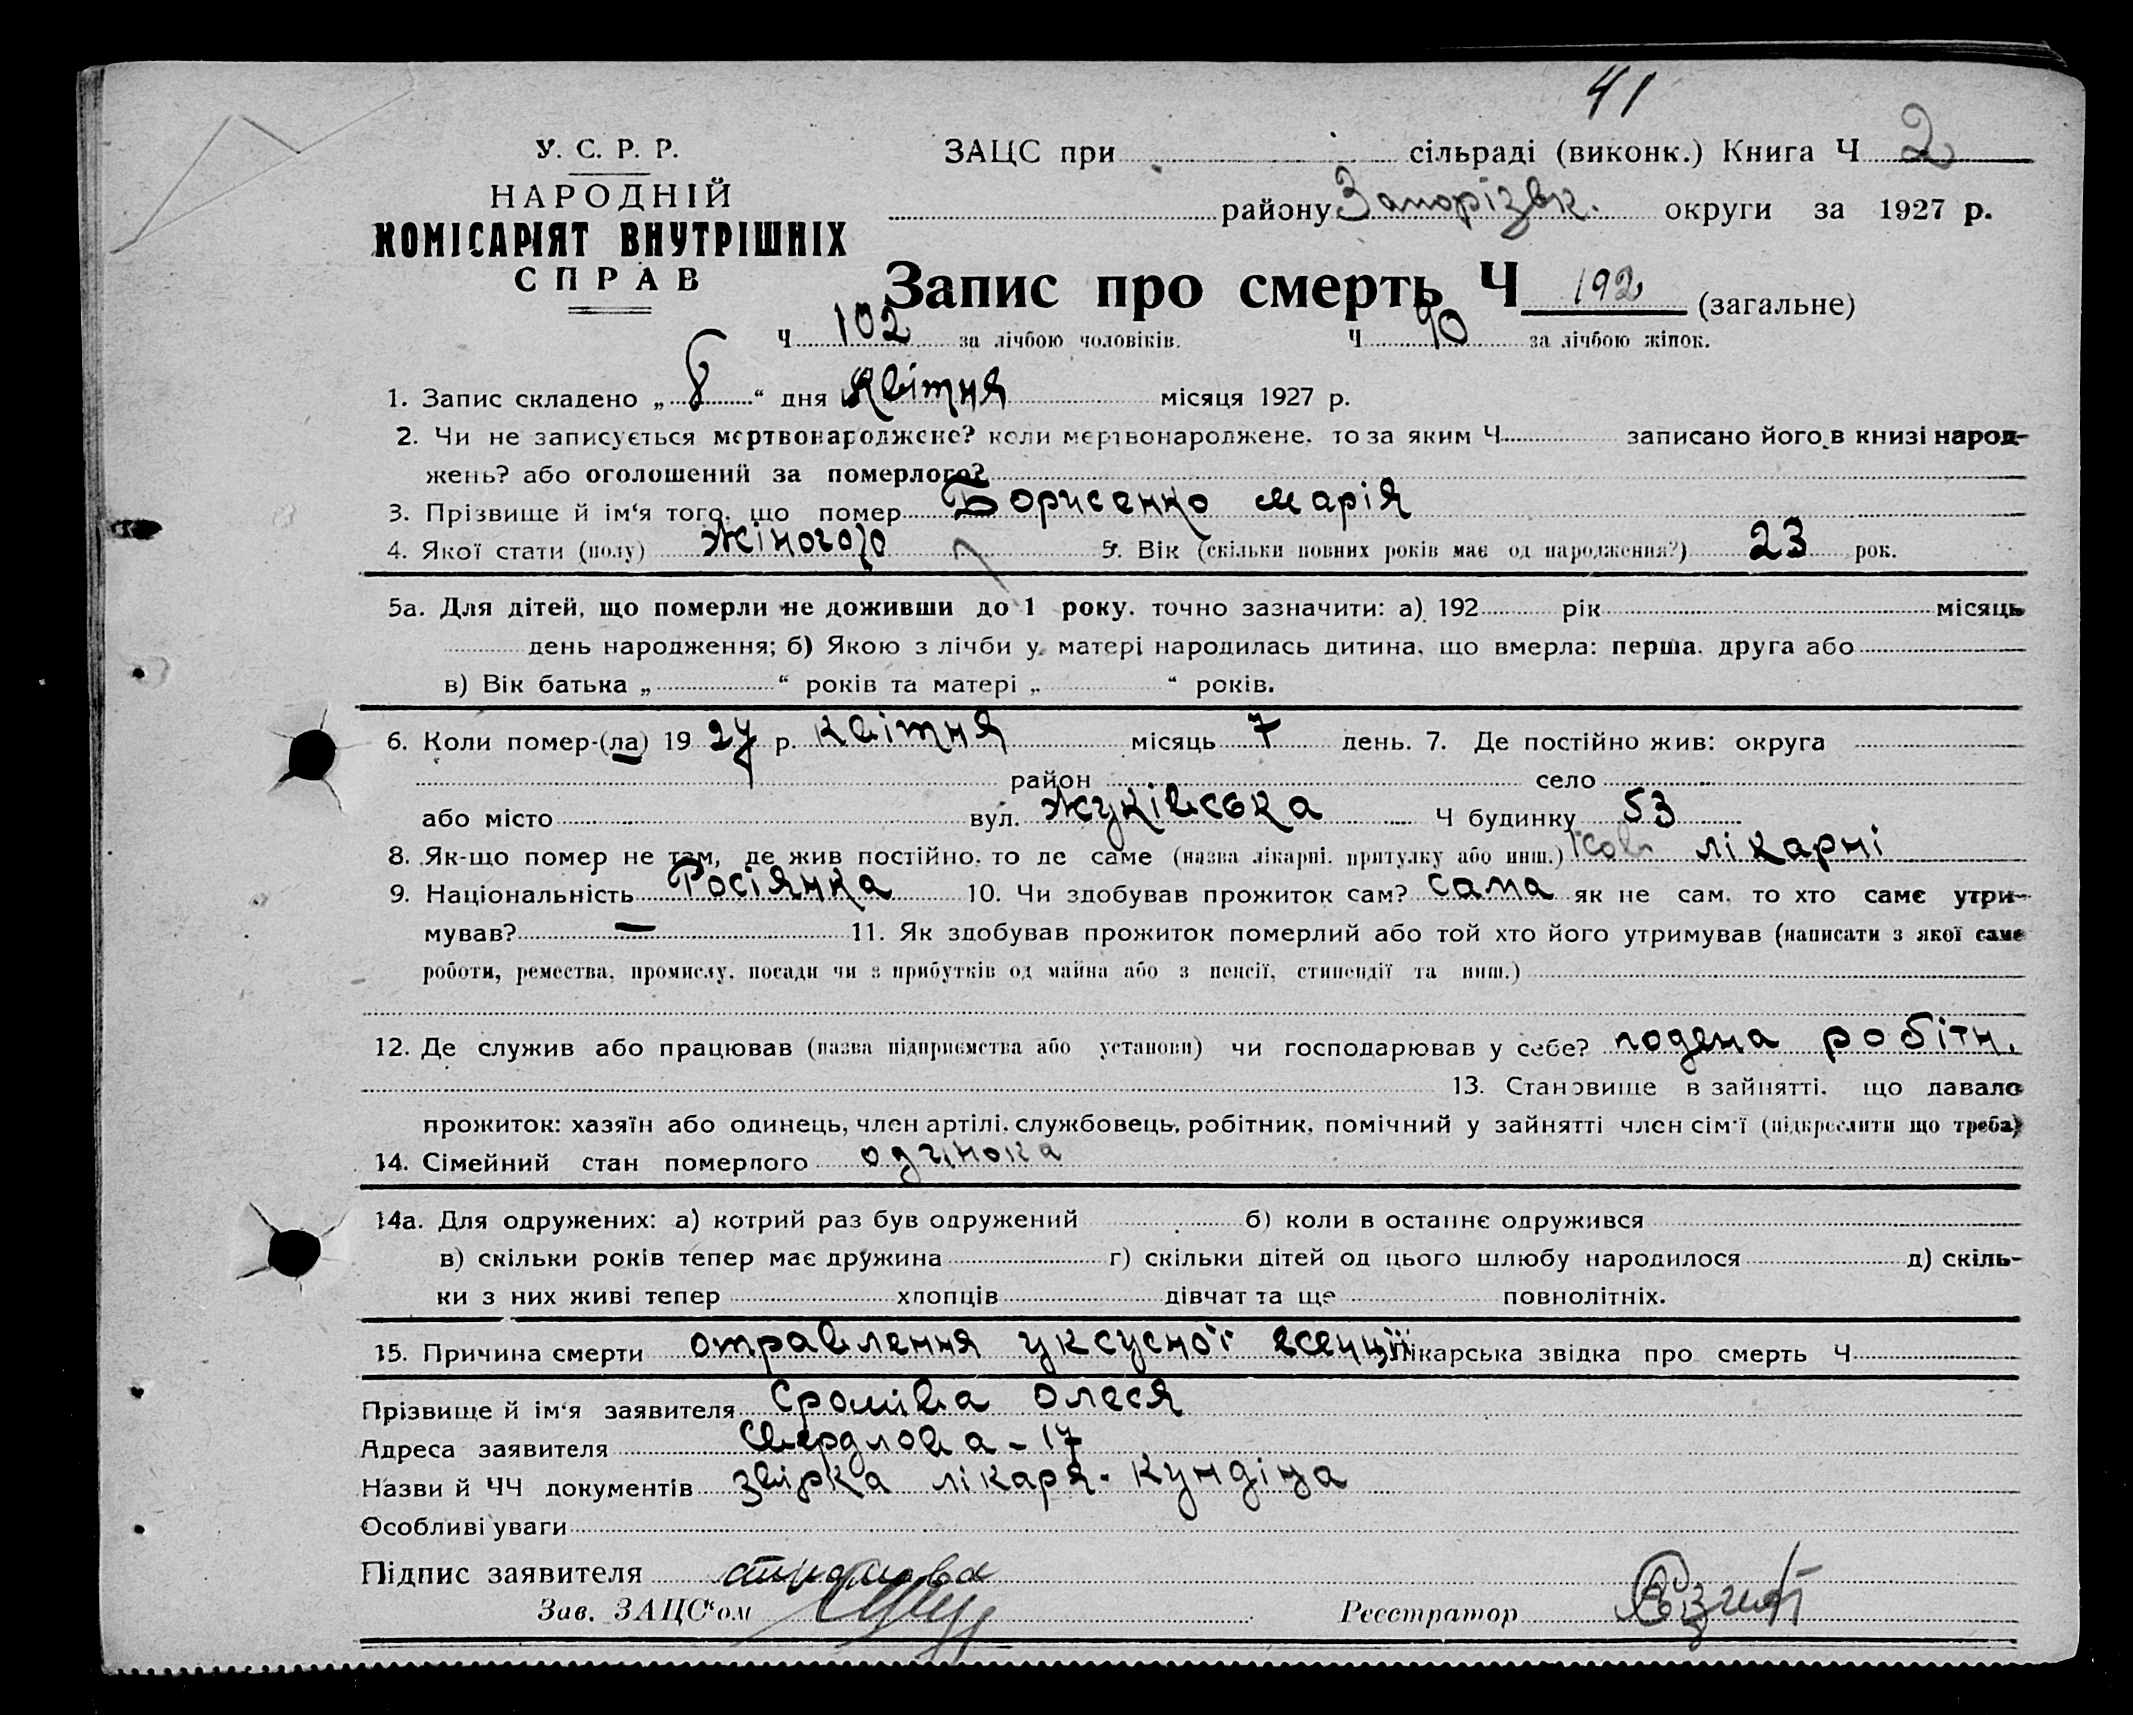 41
У. С. Р. Р.
НАРОДНІЙ
КОМІСАРІЯТ ВНУТРІШНІХ
СПРАВ
ЗАЦС при сільраді (виконк.) Книга Ч 2
району Запорізьк. округи за 1927 р.
Запис про смерть Ч 192 (загальне)
Ч 102 за лічбою чоловіків. Ч 90 за лічбою жінок.
1. Запис складено „ 8 “ дня Квітня місяця 1927 р.
2. Чи не записується мертвонароджене? коли мертвонароджене, то за яким Ч записано його в книзі народ-
жень? або оголошений за померлого?
3. Прізвище й ім‘я того, що помер Борисенко Марія
4. Якої стати (полу) жіночого 5. Вік (скільки повних років має од народження?) 23 рок.
5а. Для дітей, що померли не доживши до 1 року, точно зазначити: а) 192 рік місяць
день народження; б) Якою з лічби у матері народилась дитина, що вмерла: перша, друга або
в) Вік батька „ “ років та матері „ “ років.
6. Коли помер-(ла) 19 27 р. квітня місяць 7 день. 7. Де постійно жив: округа
район село
або місто вул. Жуківська Ч будинку 53
8. Як-що помер не там, де жив постійно, то де саме (назва лікарні, притулку або инш.) лікарні
9. Національність Росіянка 10. Чи здобував прожиток сам? сама як не сам, то хто саме утри-
мував? — 11. Як здобував прожиток померлий або той хто його утримував (написати з якої саме
роботи, ремества, промислу, посади чи з прибутків од майна або з пенсії, стипендії та инш.)
12. Де служив або працював (назва підприємства або установи) чи господарював у себе? подена робітн.
13. Становище в зайнятті, що давало
прожиток: хазяїн або одинець, член артілі, службовець, робітник, помічний у зайнятті член сім‘ї (підкреслити що треба)
14. Сімейний стан померлого одинока
14а. Для одружених: а) котрий раз був одружений б) коли в останнє одружився
в) скільки років тепер має дружина г) скільки дітей од цього шлюбу народилося д) скіль-
ки з них живі тепер хлопців дівчат та ще повнолітніх.
15. Причина смерти отравлення уксусної есенції Лікарська звідка про смерть Ч
Прізвище й ім‘я заявителя Олеся
Адреса заявителя Свердлова - 17
Назви й ЧЧ документів звірка лікаря
Особливі уваги
Підпис заявителя
Зав. ЗАЦС‘ом Реєстратор